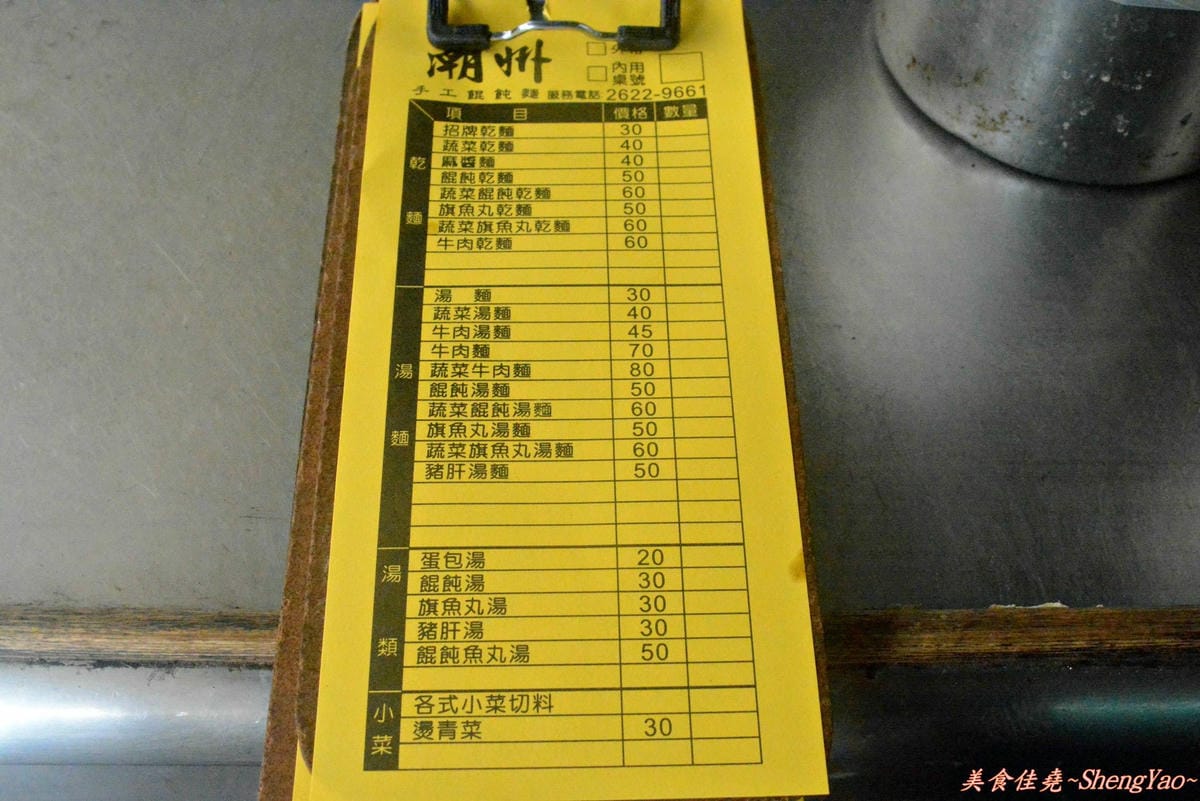 潮州
內用
桌號
手工餛飩麵 服務電話 2622-9661
項目 價格 數量
乾麵
招牌乾麵 30
蔬菜乾麵 40
麻醬麵 40
餛飩乾麵 50
蔬菜餛飩乾麵 60
旗魚丸乾麵 50
蔬菜旗魚丸乾麵 60
牛肉乾麵 60
湯麵
湯 麵 30
蔬菜湯麵 40
牛肉湯麵 45
牛肉麵 70
蔬菜牛肉麵 80
餛飩湯麵 50
蔬菜餛飩湯麵 60
旗魚丸湯麵 50
蔬菜旗魚丸湯麵 60
豬肝湯麵 50
湯類
蛋包湯 20
餛飩湯 30
旗魚丸湯 30
豬肝湯 30
餛飩魚丸湯 50
小菜
各式小菜切料
燙青菜 30
美食佳堯~ShengYao~